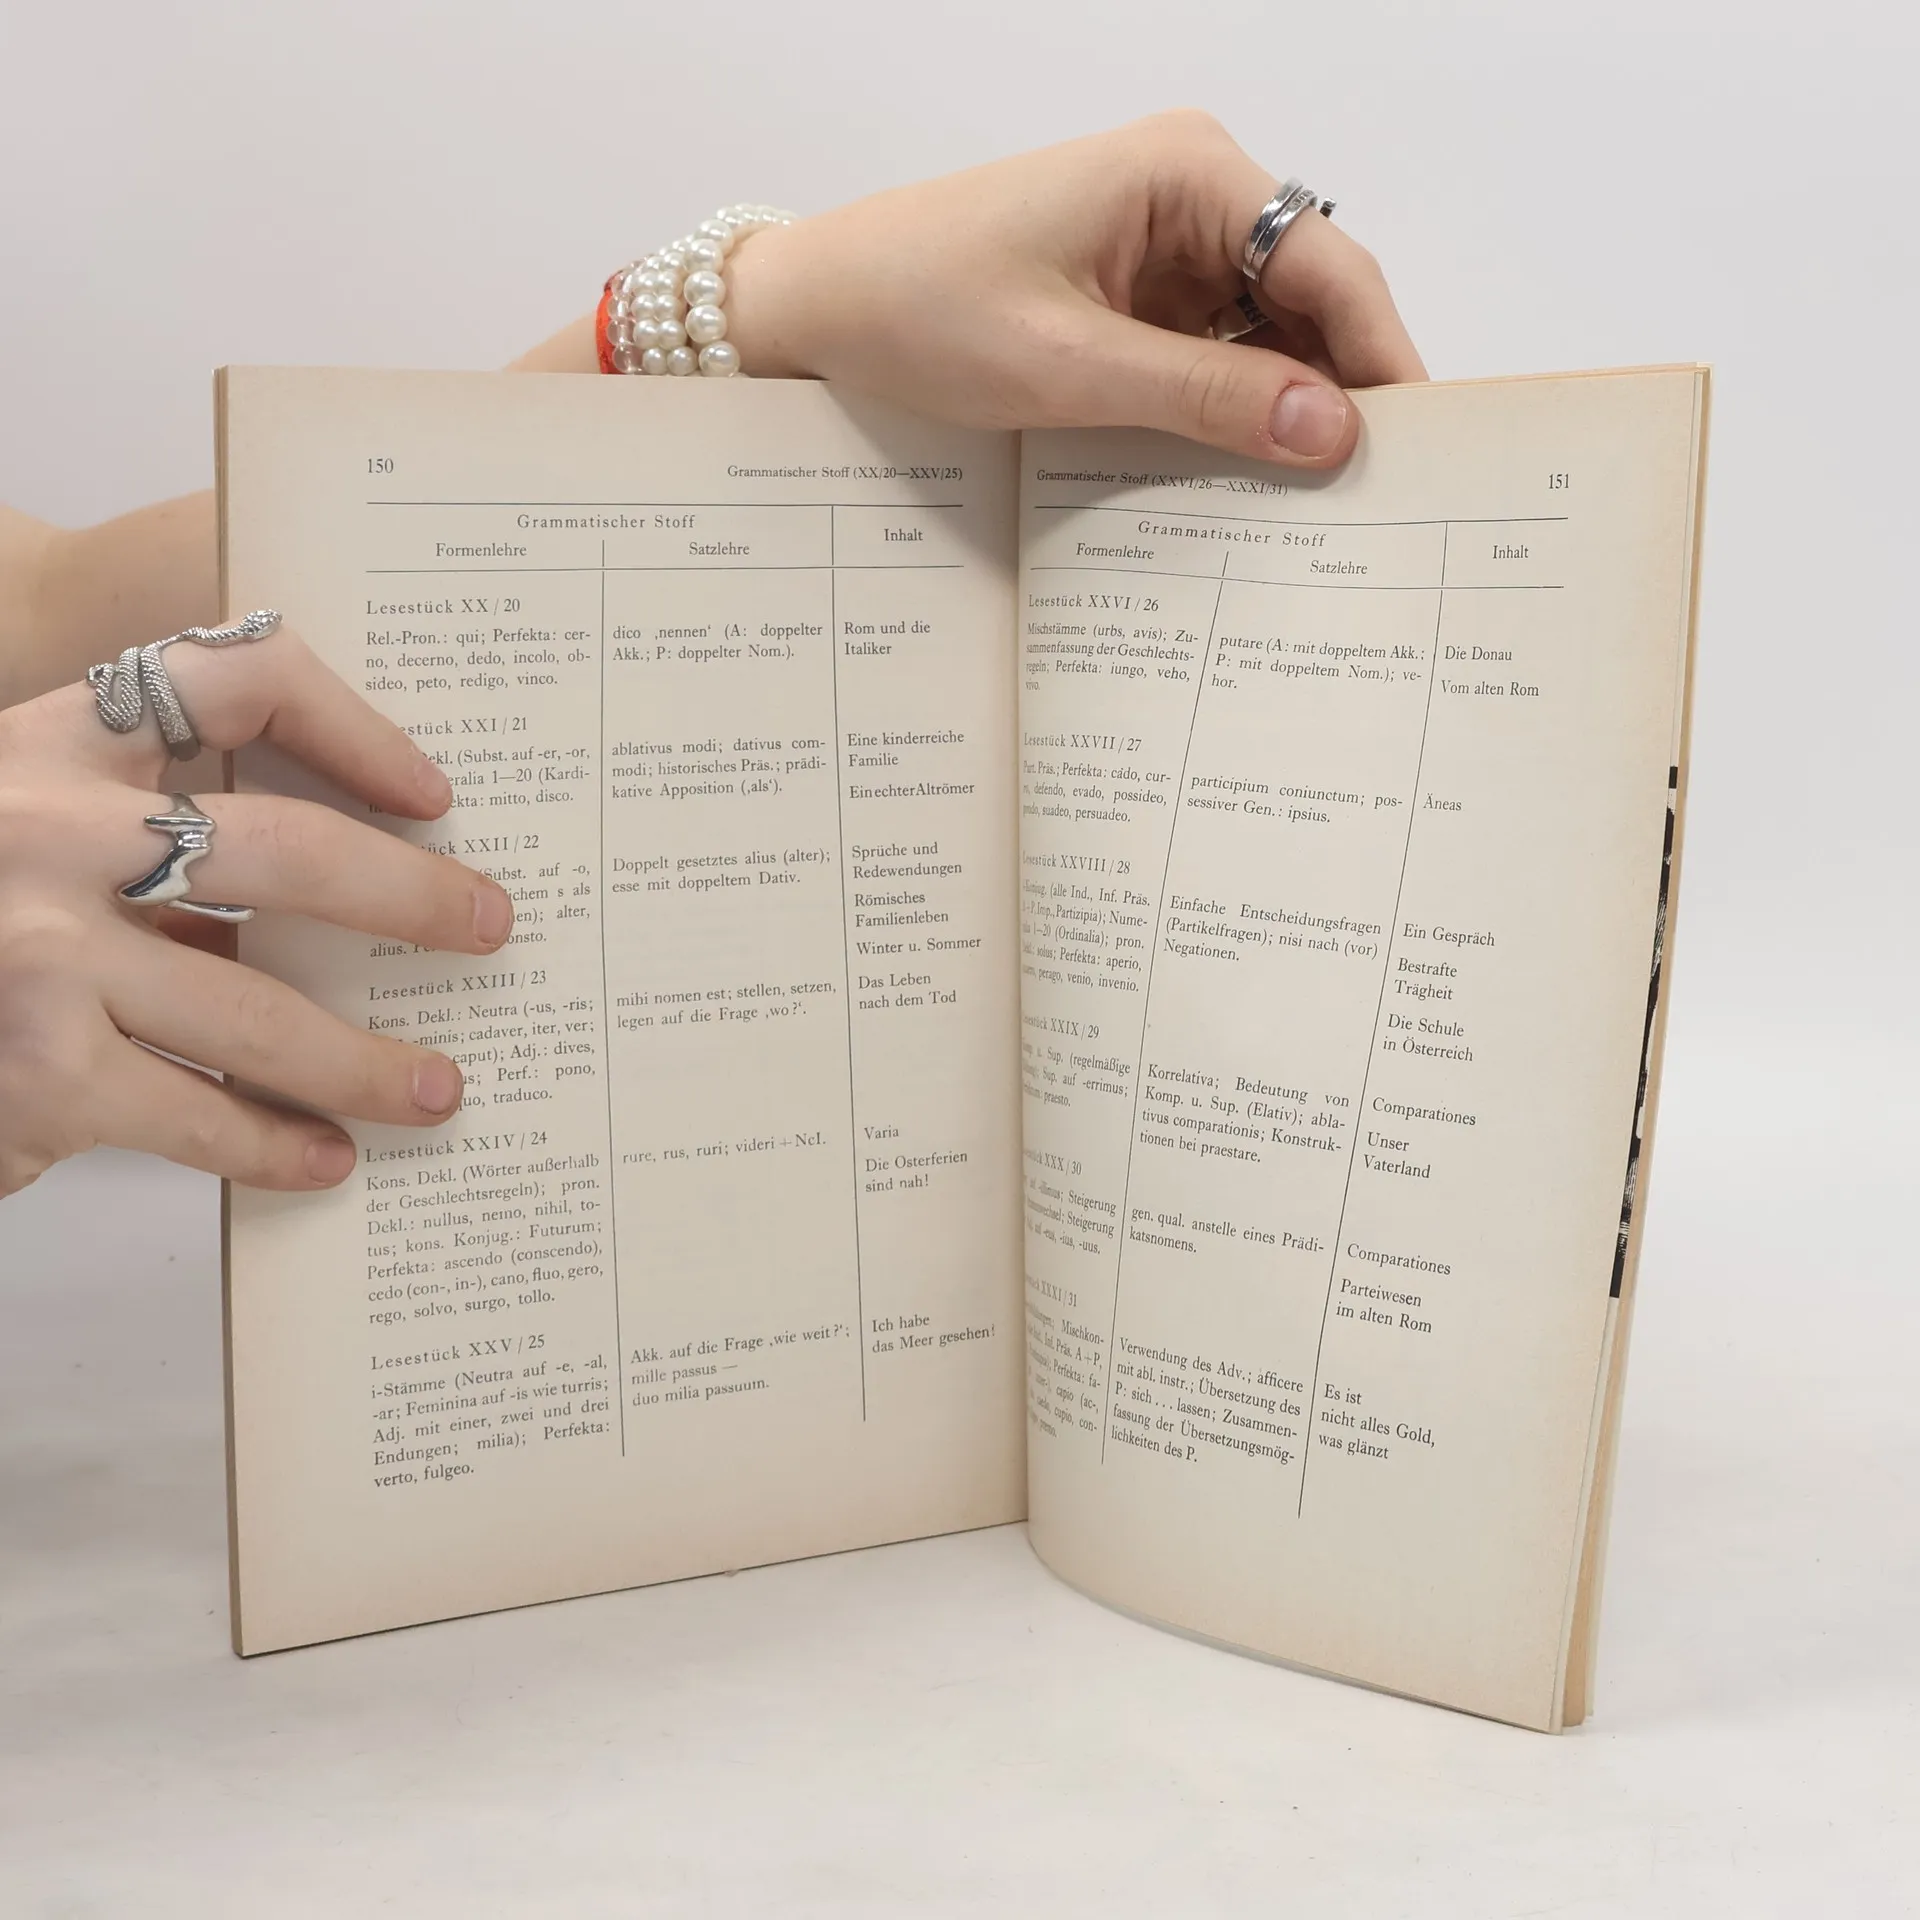 150
Grammatischer Stoff (XX/20—XXV/25)
Grammatischer Stoff
Formenlehre
Satzlehre
Inhalt
Lesestück XX/20
Rel.-Pron.: qui; Perfekta: cer-
no, decerno, dedo, incolo, ob-
sideo, peto, redigo, vinco.
dico ‚nennen‘ (A: doppelter
Akk.; P: doppelter Nom.).
Rom und die
Italiker
XXI/21
(Subst. auf -er, -or,
1—20 (Kardi-
mitto, disco.
ablativus modi; dativus com-
modi; historisches Präs.; prädi-
kative Apposition (‚als‘).
Eine kinderreiche
Familie
Ein echter Altrömer
XXII/22
(Subst. auf -o,
s als
alter,
alius.
Doppelt gesetztes alius (alter);
esse mit doppeltem Dativ.
Sprüche und
Redewendungen
Römisches
Familienleben
Winter u. Sommer
Lesestück XXIII/23
Kons. Dekl.: Neutra (-us, -ris;
-minis; cadaver, iter, ver;
caput); Adj.: dives,
Perf.: pono,
traduco.
mihi nomen est; stellen, setzen,
legen auf die Frage ‚wo?‘.
Das Leben
nach dem Tod
Lesestück XXIV/24
Kons. Dekl. (Wörter außerhalb
der Geschlechtsregeln); pron.
Dekl.: nullus, nemo, nihil, to-
tus; kons. Konjug.: Futurum;
Perfekta: ascendo (conscendo),
cedo (con-, in-), cano, fluo, gero,
rego, solvo, surgo, tollo.
rure, rus, ruri; videri + NcI.
Varia
Die Osterferien
sind nah!
Lesestück XXV/25
i-Stämme (Neutra auf -e, -al,
-ar; Feminina auf -is wie turris;
Adj. mit einer, zwei und drei
Endungen; milia); Perfekta:
verto, fulgeo.
Akk. auf die Frage ‚wie weit?‘;
mille passus —
duo milia passuum.
Ich habe
das Meer gesehen!
Grammatischer Stoff (XXVI/26—XXXI/31)
151
Grammatischer Stoff
Formenlehre
Satzlehre
Inhalt
Lesestück XXVI/26
Mischstämme (urbs, avis); Zu-
sammenfassung der Geschlechts-
regeln; Perfekta: iungo, veho,
vivo.
putare (A: mit doppeltem Akk.;
P: mit doppeltem Nom.); ve-
hor.
Die Donau
Vom alten Rom
Lesestück XXVII/27
Part. Präs.; Perfekta: cado, cur-
defendo, evado, possideo,
suadeo, persuadeo.
participium coniunctum; pos-
sessiver Gen.: ipsius.
Äneas
Lesestück XXVIII/28
(alle Ind., Inf. Präs.
Partizipia); Nume-
1—20 (Ordinalia); pron.
solus; Perfekta: aperio,
perago, venio, invenio.
Einfache Entscheidungsfragen
(Partikelfragen); nisi nach (vor)
Negationen.
Ein Gespräch
Bestrafte
Trägheit
Die Schule
in Österreich
XXIX/29
u. Sup. (regelmäßige
Sup. auf -errimus;
praesto.
Korrelativa; Bedeutung von
Komp. u. Sup. (Elativ); abla-
tivus comparationis; Konstruk-
tionen bei praestare.
Comparationes
Unser
Vaterland
XXX/30
-illimus; Steigerung
Steigerung
auf -eus, -ius, -uus.
gen. qual. anstelle eines Prädi-
katsnomens.
Comparationes
Parteiwesen
im alten Rom
XXXI/31
Mischkon-
Inf. Präs. A+P,
Perfekta: fa-
capio (ac-,
cupio, con-
Verwendung des Adv.; afficere
mit abl. instr.; Übersetzung des
P: sich . . . lassen; Zusammen-
fassung der Übersetzungsmög-
lichkeiten des P.
Es ist
nicht alles Gold,
was glänzt